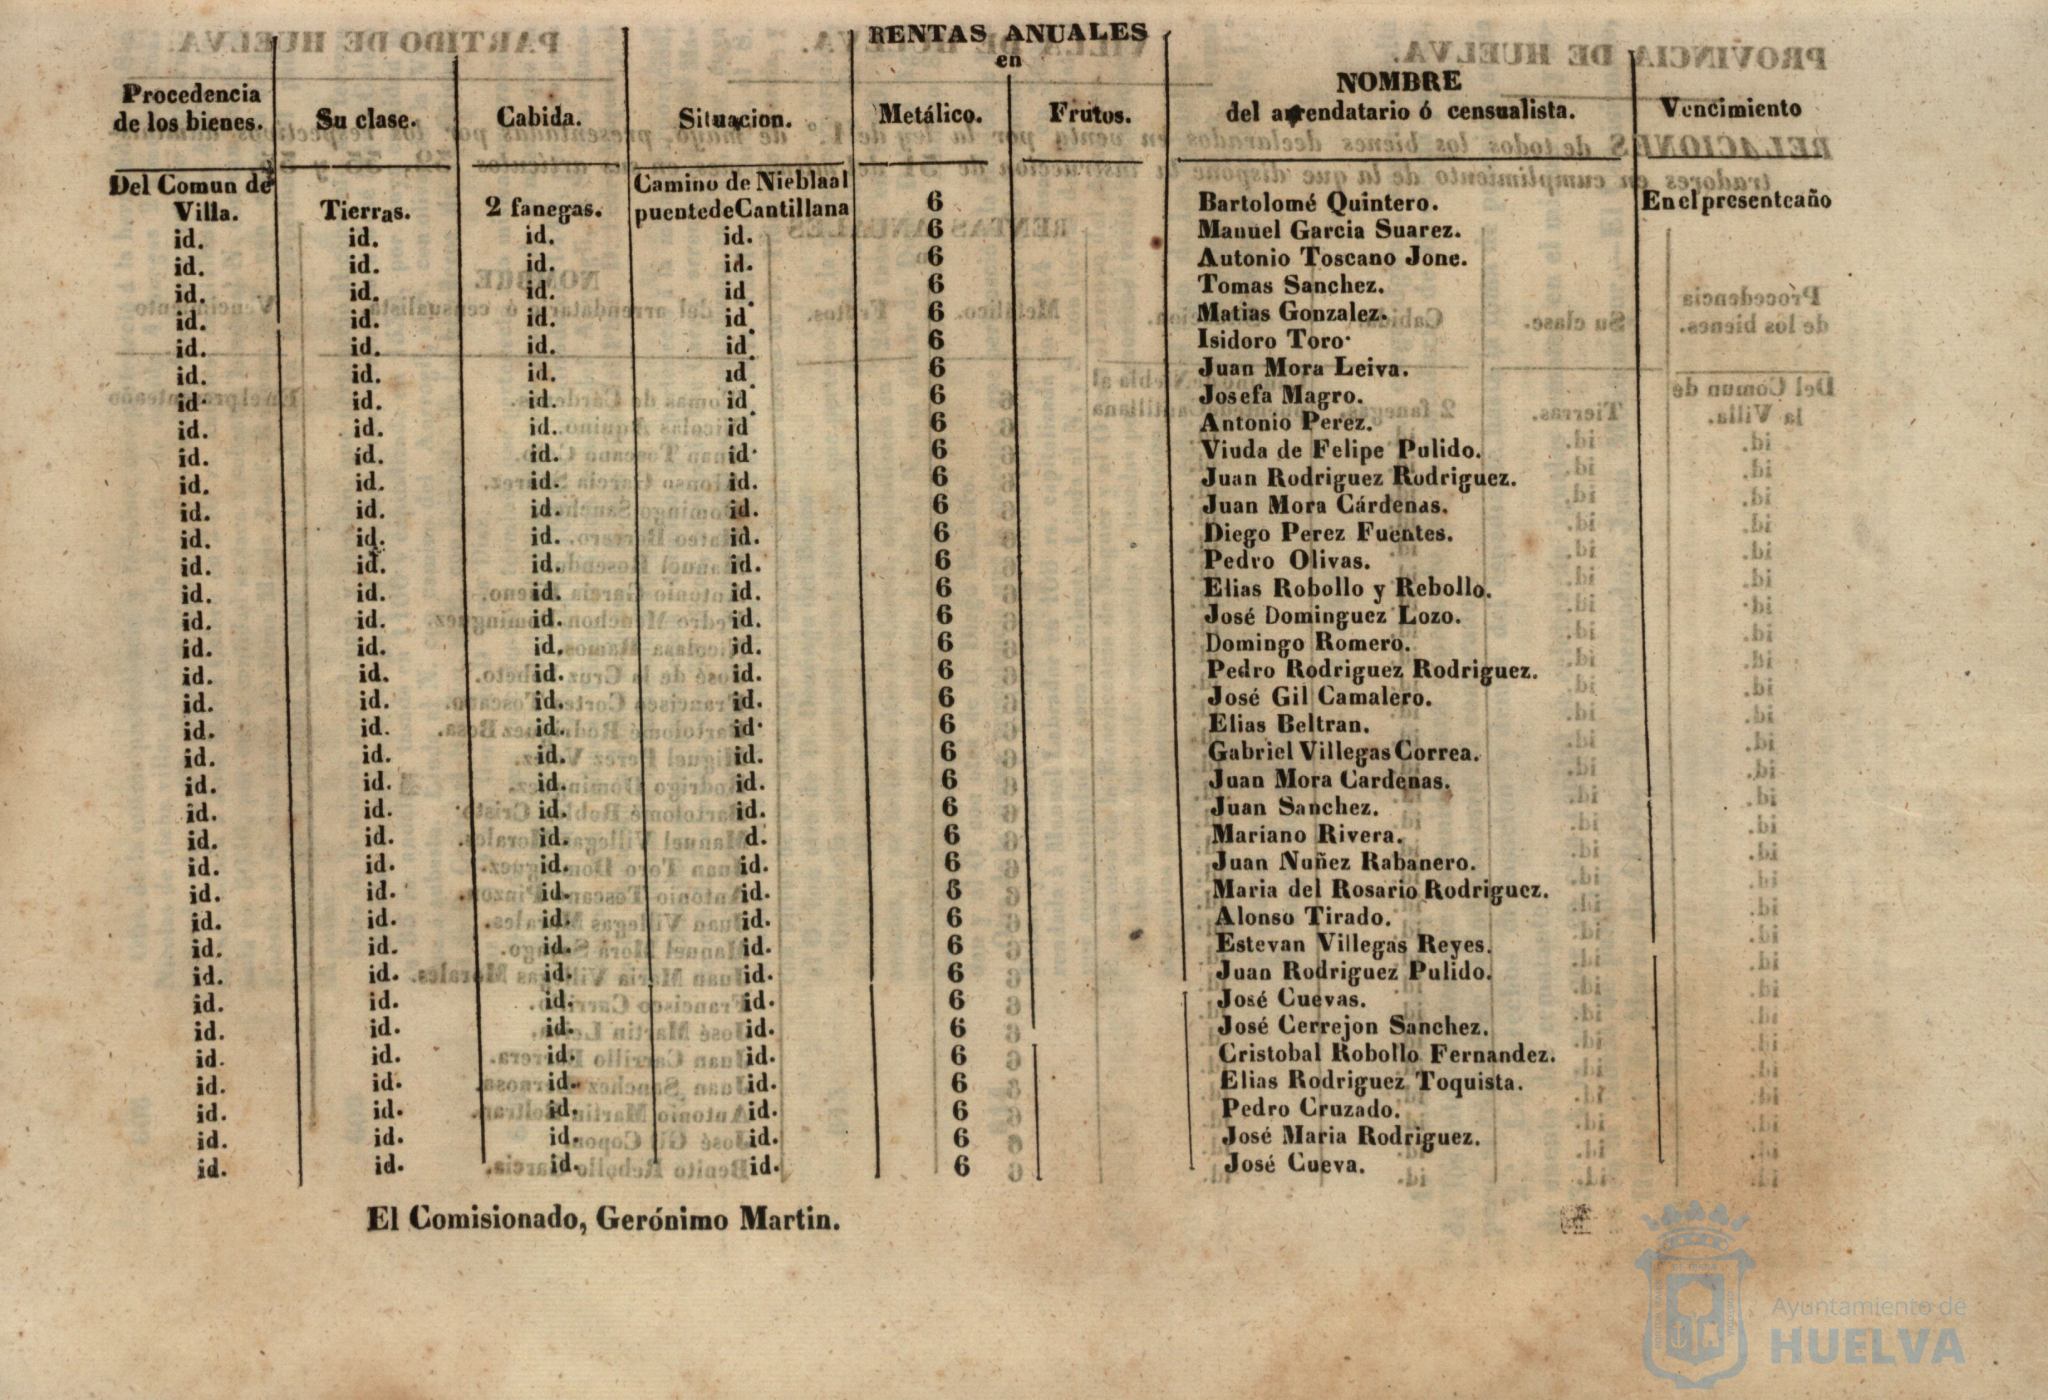 RENTAS ANUALES
en
Procedencia de los bienes. Su clase. Cabida. Situacion. Metálico. Frutos. NOMBRE del arrendatario ó censualista. Vencimiento
Del Comun de Villa. Tierras. 2 fanegas. Camino de Nieblaal puentedeCantillana 6 Bartolomé Quintero. Enelpresenteaño
id. id. id. id. 6 Manuel Garcia Suarez.
id. id. id. id. 6 Autonio Toscano Jone.
id. id. id. id. 6 Tomas Sanchez.
id. id. id. id. 6 Matias Gonzalez.
id. id. id. id. 6 Isidoro Toro.
id. id. id. id. 6 Juan Mora Leiva.
id. id. id. id. 6 Josefa Magro.
id. id. id. id 6 Antonio Perez.
id. id. id. id. 6 Viuda de Felipe Pulido.
id. id. id. id. 6 Juan Rodriguez Rodriguez.
id. id. id. id. 6 Juan Mora Cárdenas.
id. id. id. id. 6 Diego Perez Fuentes.
id. id. id. id. 6 Pedro Olivas.
id. id. id. id. 6 Elias Robollo y Rebollo.
id. id. id. id. 6 José Dominguez Lozo.
id. id. id. id. 6 Domingo Romero.
id. id. id. id. 6 Pedro Rodriguez Rodriguez.
id. id. id. id. 6 José Gil Camalero.
id. id. id. id. 6 Elias Beltran.
id. id. id. id. 6 Gabriel Villegas Correa.
id. id. id. id. 6 Juan Mora Cardenas.
id. id. id. id. 6 Juan Sanchez.
id. id. id. d. 6 Mariano Rivera.
id. id. id. id. 6 Juan Nuñez Rabanero.
id. id. id. id. 6 Maria del Rosario Rodriguez.
id. id. id. id. 6 Alonso Tirado.
id. id. id. id. 6 Estevan Villegas Reyes.
id. id. id. id. 6 Juan Rodriguez Pulido.
id. id. id. id. 6 José Cuevas.
id. id. id. id. 6 José Cerrejon Sanchez.
id. id. id. id. 6 Cristobal Robollo Fernandez.
id. id. id. id. 6 Elias Rodriguez Toquista.
id. id. id. id. 6 Pedro Cruzado.
id. id. id. id. 6 José Maria Rodriguez.
id. id. id. id. 6 José Cueva.
El Comisionado, Gerónimo Martin.
Ayuntamiento de
HUELVA